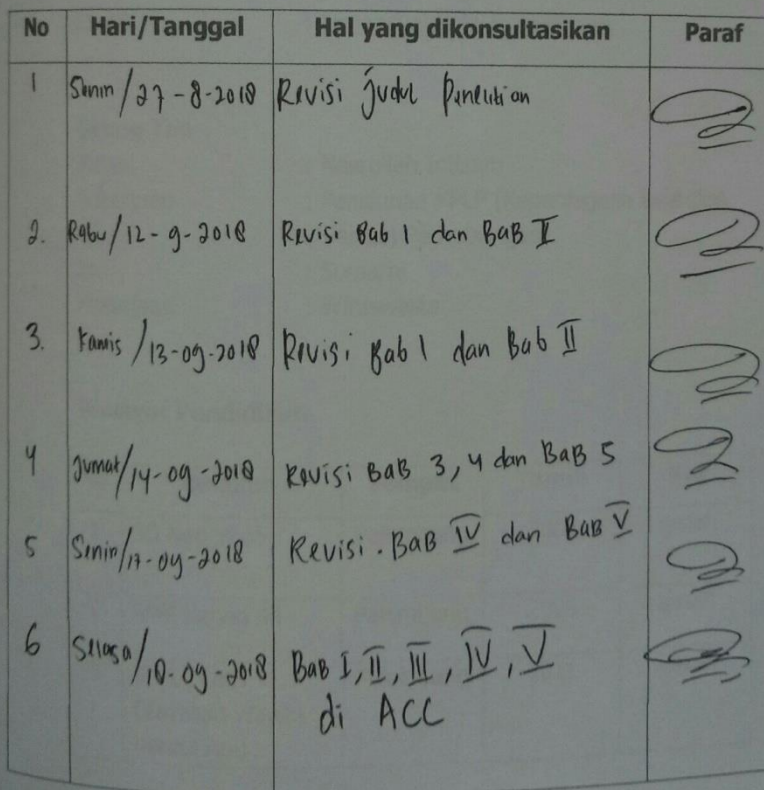 No Hari/Tanggal Hal yang dikonsultasikan Paraf
1 Senin/27-8-2018 Revisi judul Penelitian
2. Rabu/12-9-2018 Revisi Bab I dan BaB II
3. Kamis/13-09-2018 Revisi Bab I dan Bab II
4 Jumat/14-09-2018 Revisi BaB 3, 4 dan BaB 5
5 Senin/17-09-2018 Revisi. BaB IV dan BaB V
6 Selasa/18-09-2018 BaB I, II, III, IV, V
di ACC